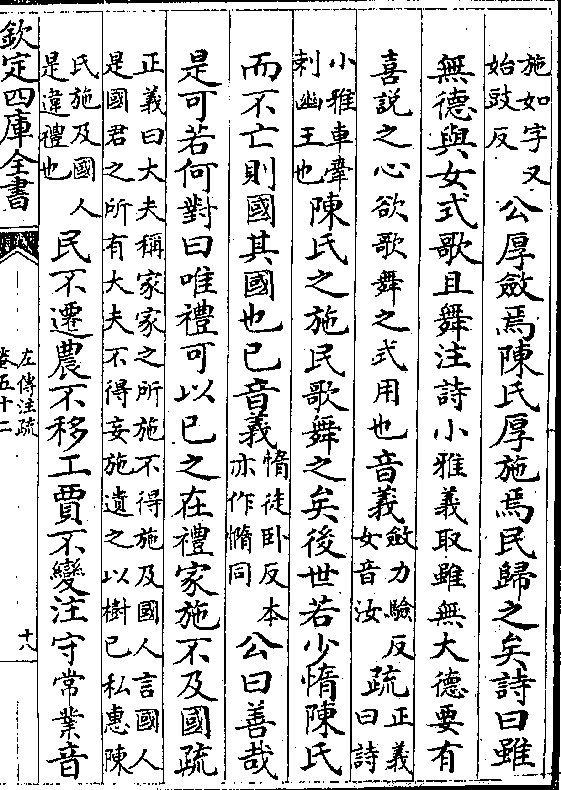 施如字又
始豉反
公厚斂焉陳氏厚施焉民歸之矣詩曰雖
無德與女式歌且舞注詩小雅義取雖無大德要有
喜說之心欲歌舞之式用也音義
斂力驗反
女音汝
疏
正義
曰詩
小雅車舝
刺幽王也
陳氏之施民歌舞之矣後世若少惰陳氏
而不亡則國其國也已音義
惰徒卧反本
亦作憜同
公曰善哉
是可若何對曰唯禮可以已之在禮家施不及國疏
正義曰大夫稱家家之所施不得施及國人言國人
是國君之所有大夫不得妄施遺之以樹已私惠陳
氏施及國人
是違禮也
民不遷農不移工賈不變注守常業音
欽定四庫全書
左傳注疏
卷五十二
十八